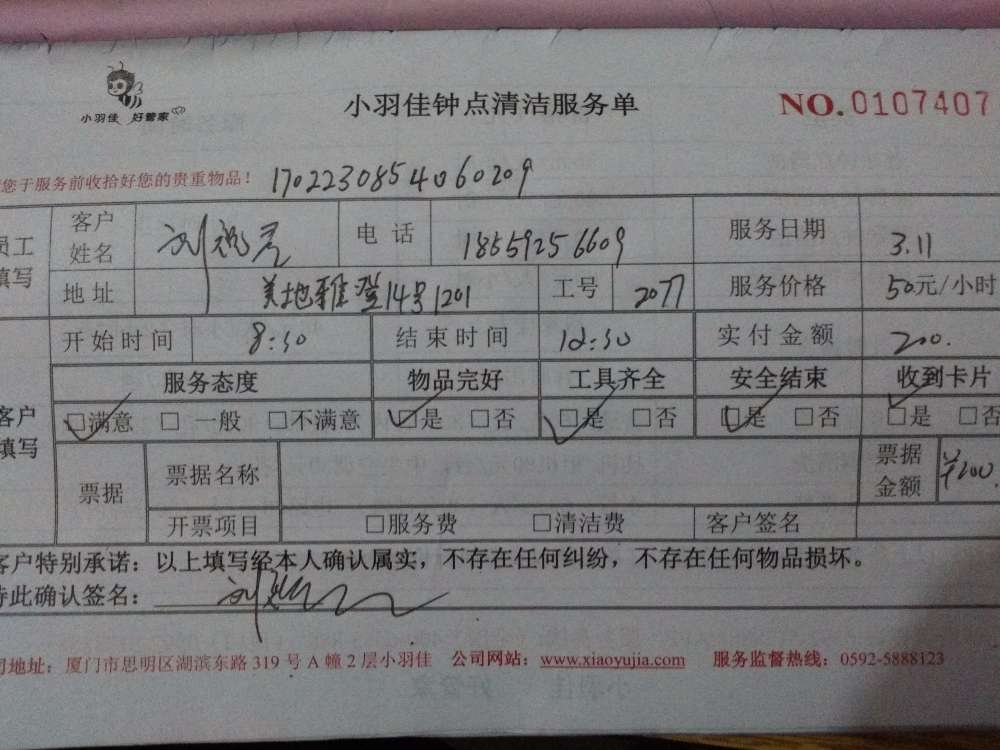 小羽佳 好管家
小羽佳钟点清洁服务单
NO.0107407
您于服务前收拾好您的贵重物品！ 1702230854060209
员工填写
客户姓名 刘 电话 18559256609 服务日期 3.11
地址 美地雅登14号1201 工号 2077 服务价格 50元/小时
客户填写
开始时间 8:30 结束时间 12:30 实付金额 200.
服务态度 物品完好 工具齐全 安全结束 收到卡片
☑满意 □ 一般 □不满意 ☑是 □否 ☑是 □否 ☑是 □否 ☑是 □否
票据 票据名称 票据金额 ¥200.
开票项目 □服务费 □清洁费 客户签名
客户特别承诺：以上填写经本人确认属实，不存在任何纠纷，不存在任何物品损坏。
特此确认签名： 刘
司地址：厦门市思明区湖滨东路 319 号 A 幢 2 层小羽佳 公司网站：www.xiaoyujia.com 服务监督热线：0592-5888123